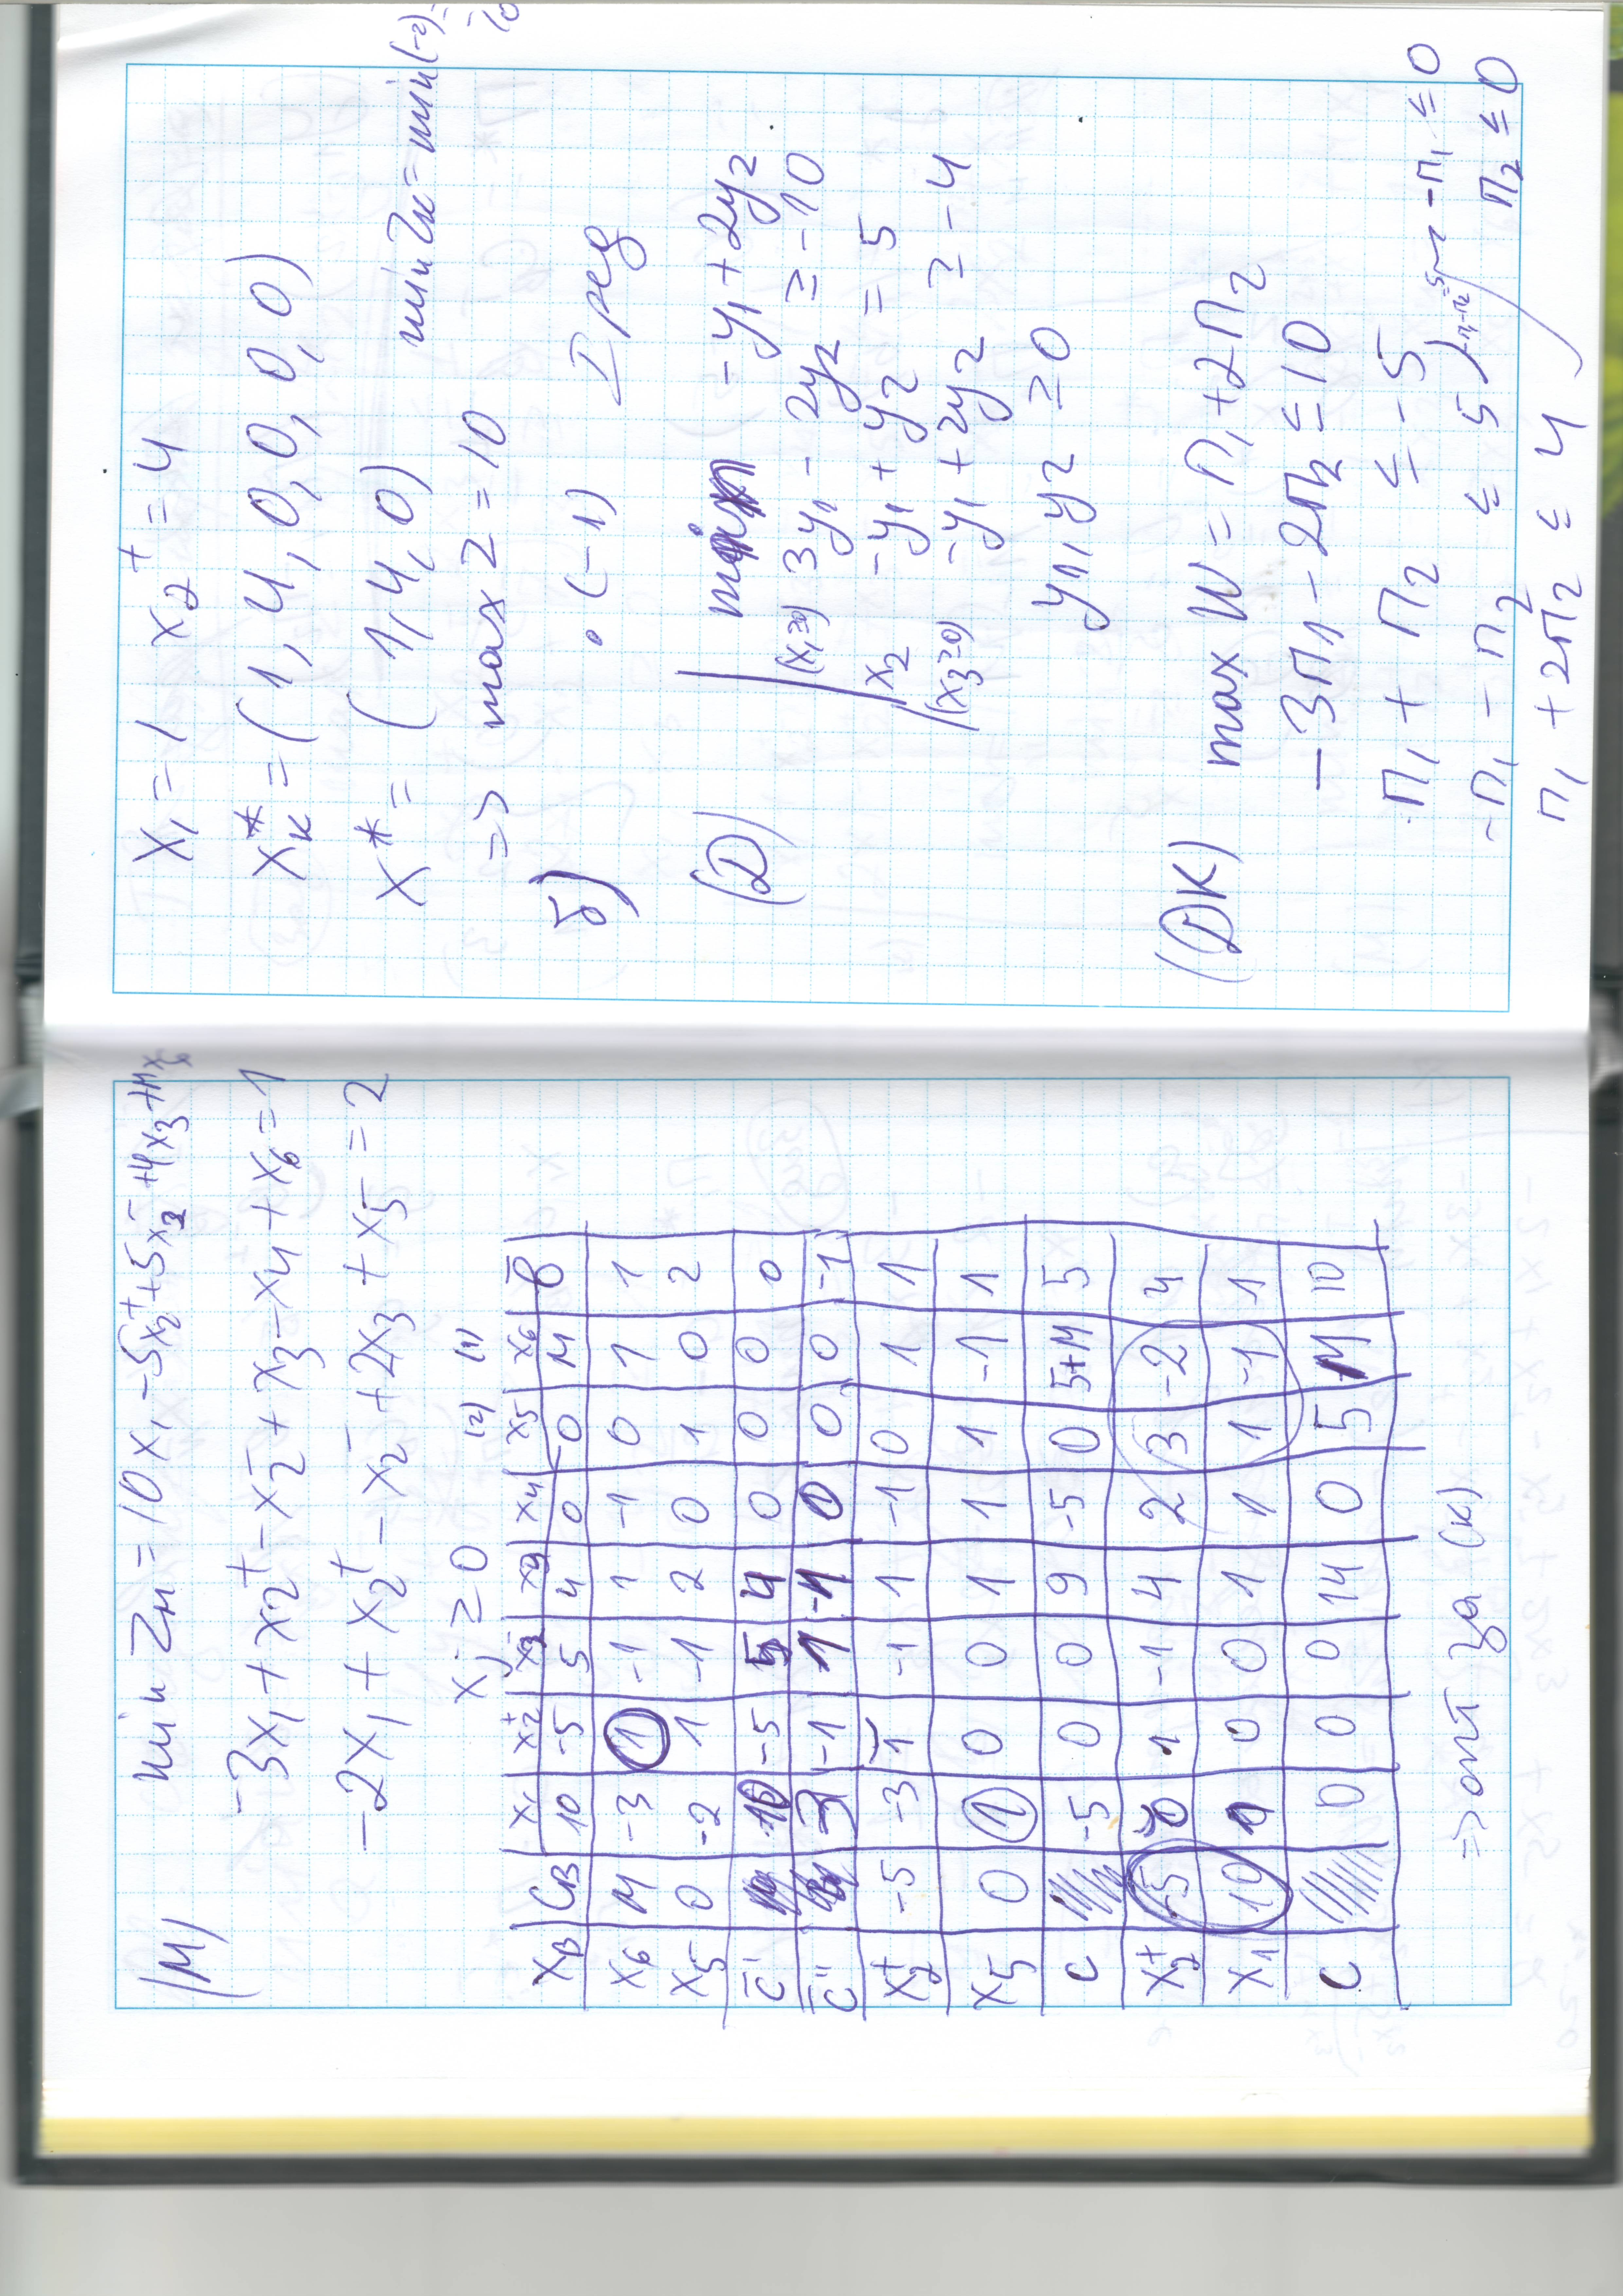 (M) min Zм = 10x₁ - 5x₂⁺ + 5x₂⁻ + 4x₃ + Mx₆
-3x₁ + x₂⁺ - x₂⁻ + x₃ - x₄ + x₆ = 1
-2x₁ + x₂⁺ - x₂⁻ + 2x₃ + x₅ = 2
xⱼ ≥ 0 (2) (1)
x_B C_B x₁ x₂⁺ x₂⁻ x₄ x₅ x₆ b̄
10 -5 5 4 0 0 M
x₆ M -3 1 -1 1 -1 0 1 1
x₅ 0 -2 1 -1 2 0 1 0 2
c̄' 10 -5 5 4 0 0 0 0
c̄'' 3 -1 1 -1 0 0 0 -1
x₂⁺ -5 -3 1 -1 1 -1 0 1 1
x₅ 0 1 0 0 1 1 1 -1 1
c -5 0 0 9 -5 0 5+M 5
x₂⁺ -5 0 1 -1 4 2 3 -2 4
x₁ 10 1 0 0 1 1 1 -1 1
c 0 0 0 14 0 5 M 10
=> опт за (к)
x₁ = 1 x₂⁺ = 4
x*ₖ = (1, 4, 0, 0, 0, 0)
x* = (1, 4, 0) min Zк = min(-z) =
=> max z = 10
б) • (-1) I ред
(D) min -y₁ + 2y₂
(x₁≥0) 3y₁ - 2y₂ ≥ -10
x₂ -y₁ + y₂ = 5
(x₃≥0) -y₁ + 2y₂ ≥ -4
y₁, y₂ ≥ 0
(DK) max W = П₁ + 2П₂
-3П₁ - 2П₂ ≤ 10
П₁ + П₂ ≤ -5
-П₁ - П₂ ≤ 5 -П₁ ≤ 0
П₁ + 2П₂ ≤ 4 П₂ ≤ 0